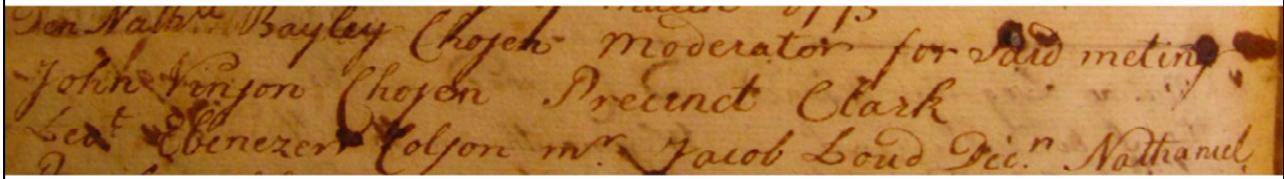 Den Nathll Bayley Chosen Moderator for Said meting
John Vinson Chosen Precinct Clark
Leat Ebenezer Colson mr. Jacob Loud Decn Nathaniel